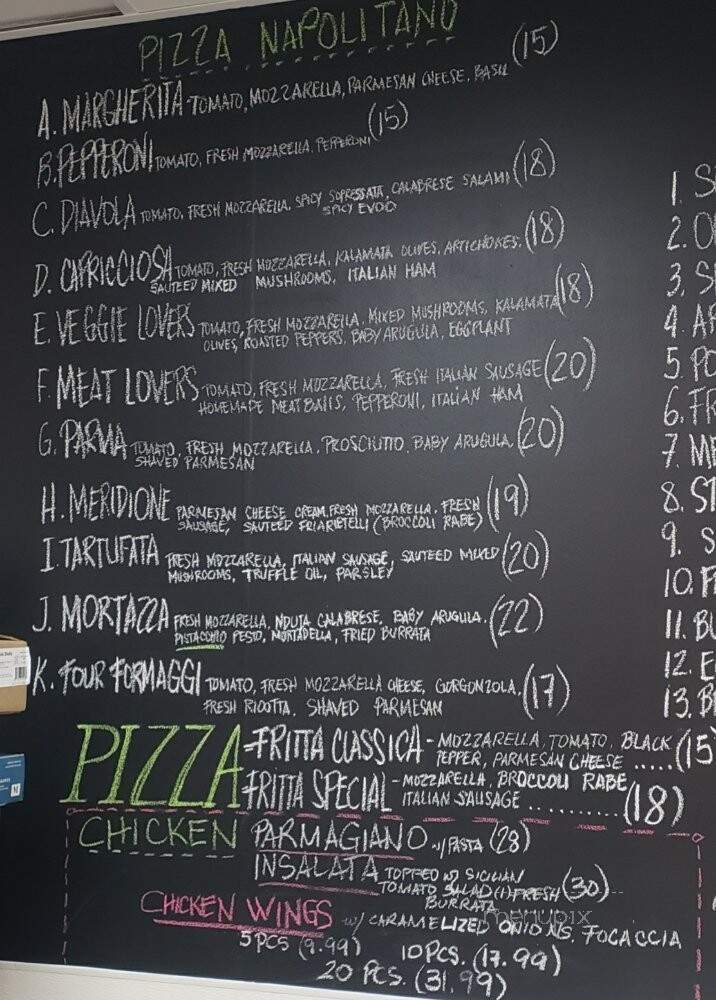 PIZZA NAPOLITANO
A. MARGHERITA TOMATO, MOZZARELLA, PARMESAN CHEESE, BASIL (15)
B. PEPPERONI TOMATO, FRESH MOZZARELLA, PEPPERONI (15)
C. DIAVOLA TOMATO, FRESH MOZZARELLA, SPICY SOPRESSATA, CALABRESE SALAMI (18)
SPICY EVOO
D. CAPRICCIOSA TOMATO, FRESH MOZZARELLA, KALAMATA OLIVES, ARTICHOKES, (18)
SAUTEED MIXED MUSHROOMS, ITALIAN HAM
E. VEGGIE LOVERS TOMATO, FRESH MOZZARELLA, MIXED MUSHROOMS, KALAMATA (18)
OLIVES, ROASTED PEPPERS, BABY ARUGULA, EGGPLANT
F. MEAT LOVERS TOMATO, FRESH MOZZARELLA, FRESH ITALIAN SAUSAGE (20)
HOMEMADE MEATBALLS, PEPPERONI, ITALIAN HAM
G. PARMA TOMATO, FRESH MOZZARELLA, PROSCIUTTO, BABY ARUGULA, (20)
SHAVED PARMESAN
H. MERIDIONE PARMESAN CHEESE CREAM, FRESH MOZZARELLA, FRESH (19)
SAUSAGE, SAUTEED FRIARIELLI (BROCCOLI RABE)
I. TARTUFATA FRESH MOZZARELLA, ITALIAN SAUSAGE, SAUTEED MIXED (20)
MUSHROOMS, TRUFFLE OIL, PARSLEY
J. MORTAZZA FRESH MOZZARELLA, NDUTA CALABRESE, BABY ARUGULA, (22)
PISTACCHIO PESTO, MORTADELLA, FRIED BURRATA
K. FOUR FORMAGGI TOMATO, FRESH MOZZARELLA CHEESE, GORGONZOLA, (17)
FRESH RICOTTA, SHAVED PARMESAN
PIZZA FRITTA CLASSICA - MOZZARELLA, TOMATO, BLACK (15)
PEPPER, PARMESAN CHEESE .....
FRITTA SPECIAL - MOZZARELLA, BROCCOLI RABE,
ITALIAN SAUSAGE .......... (18)
CHICKEN PARMAGIANO W/ PASTA (28)
INSALATA TOPPED W/ SICILIAN
TOMATO SALAD (1) FRESH (30)
BURRATA
CHICKEN WINGS W/ CARAMELIZED ONIONS, FOCACCIA
5 PCS (9.99) 10 PCS. (17.99)
20 PCS. (31.99)
1. S
2. O
3. S
4. A
5. PO
6. FR
7. ME
8. ST
9. S
10. F
11. BU
12. E
13. B
menupix